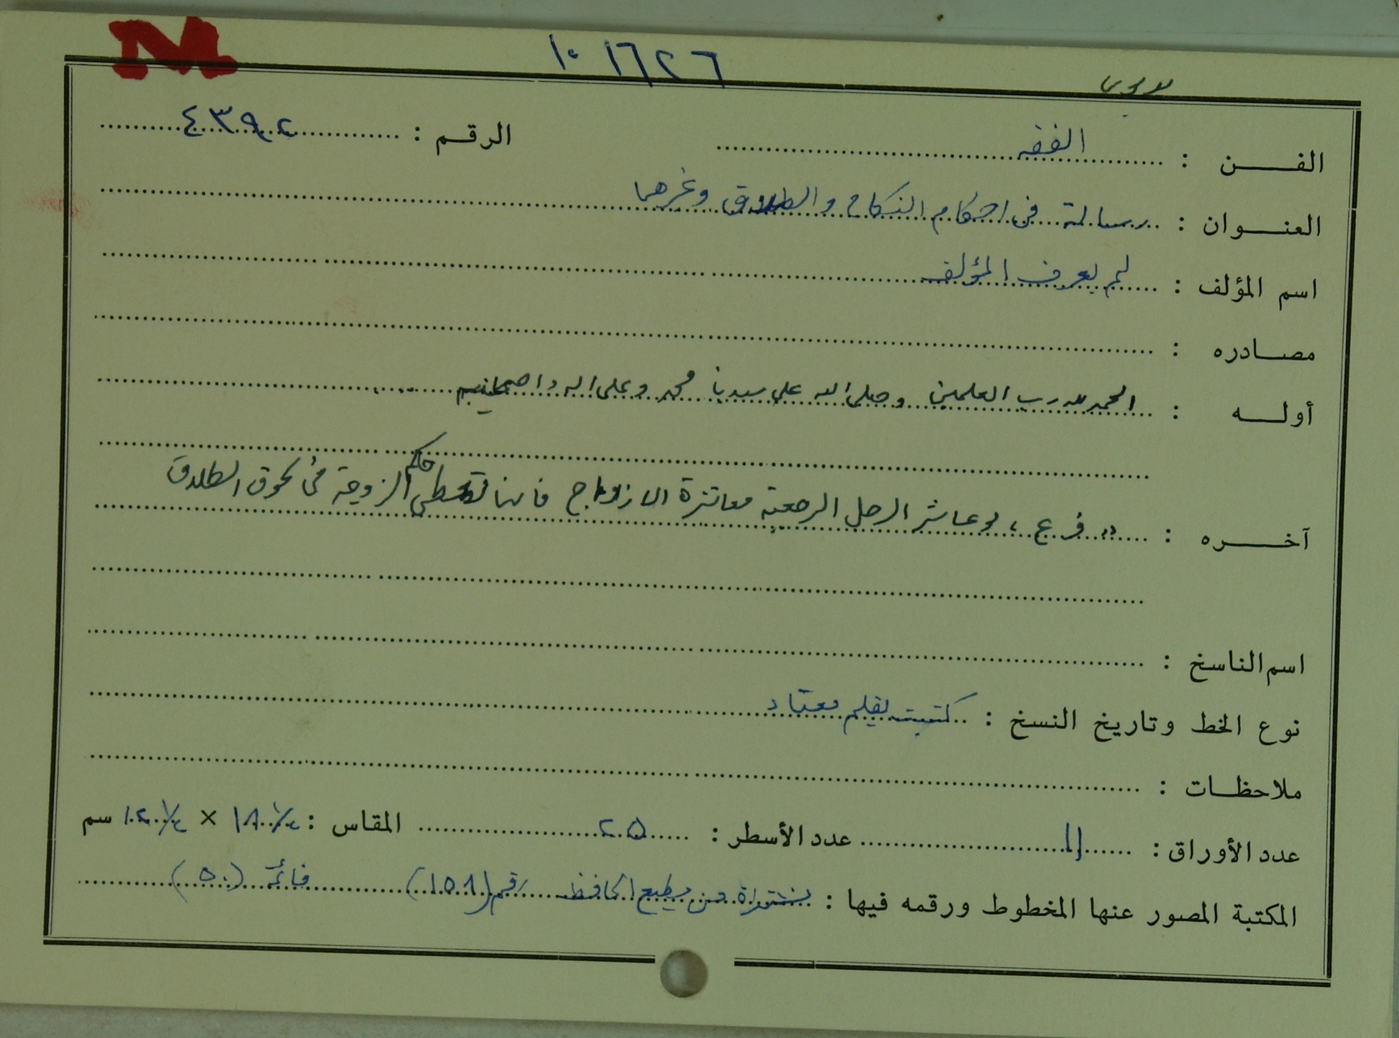 M
١٠ ١٦٢٦
الفـــن : الفقه
الرقـم : ٤٣٩٢
العنـــوان : رسالة في احكام النكاح والطلاق وغرهما
اسم المؤلف : لم يعرف المؤلف
مصـادره :
أولـــه : الحمد لله رب العلمين وصلى الله على سيدنا محمد وعلى اله واصحابه ....
آخـــره : " فرع ، لو عاشر الرجل الرجعية معاشرة الازواج فانها تعطى حكم الزوجة في لحوق الطلاق
اسم الناسخ :
نوع الخط وتاريخ النسخ : كتبت بقلم معتاد
ملاحظـات :
عدد الأوراق : ١١
عدد الأسطر : ٢٥
المقاس : × سم
المكتبة المصور عنها المخطوط ورقمه فيها : من الحافظ رقم (١٥٨) (٥٠)